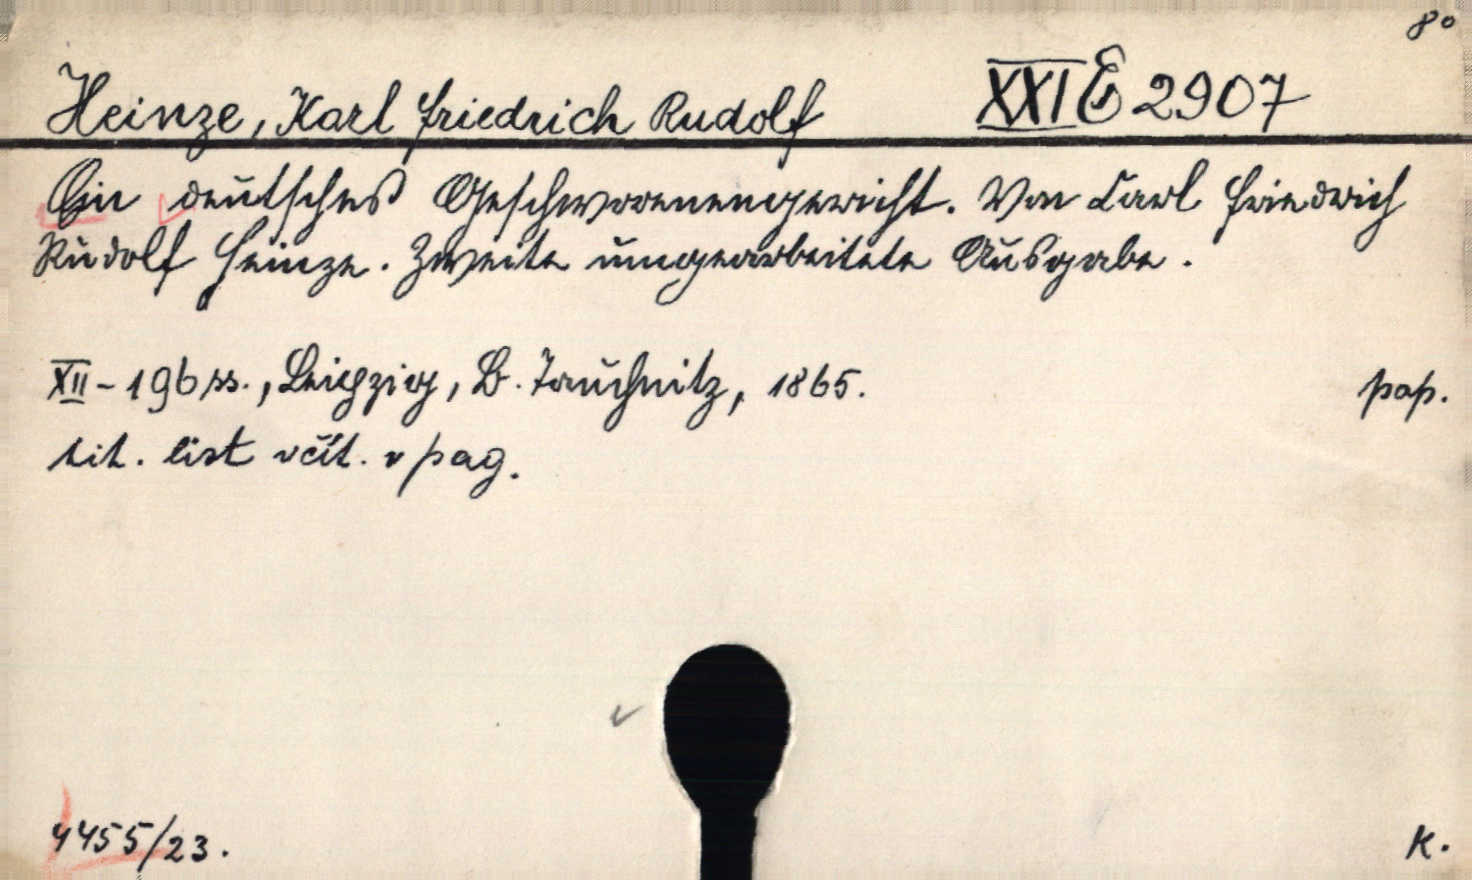 8°
Heinze, Karl Friedrich Rudolf XXI E 2907
Ein deutsches Geschworenengericht. Von Carl Friedrich
Rudolf Heinze. Zweite umgearbeitete Ausgabe.
XII - 196 ss., Leipzig, B. Tauchnitz, 1865. pap.
tit. list včít. v pag.
4455/23. K.